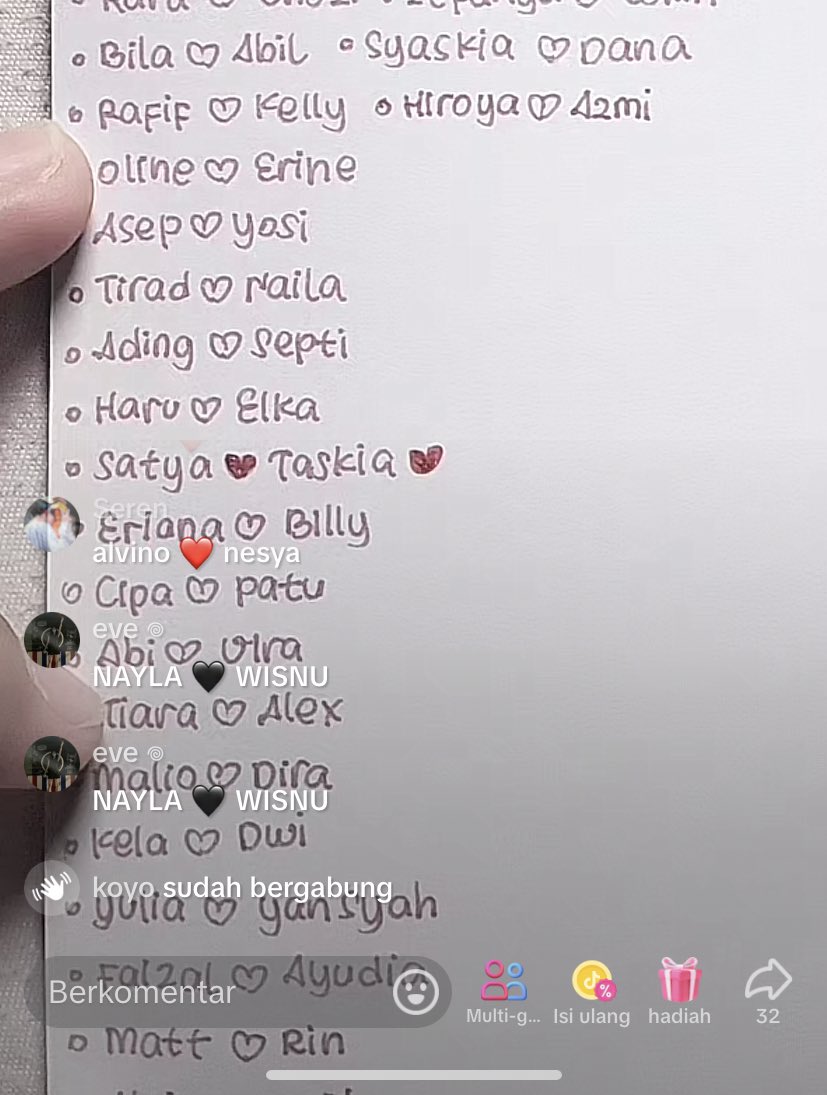 Bila ♡ Abil • Syaskia ♡ Dana
Rafif ♡ Kelly • Hiroya ♡ Azmi
Oline ♡ Erine
Asep ♡ Yosi
Tirad ♡ Naila
Ading ♡ Septi
Haru ♡ Elka
Satya ♥ Taskia ♥
Seren
Eriana ♡ Billy
alvino ❤️ nesya
Cipa ♡ patu
eve
Abi ♡ Vira
NAYLA 🖤 WISNU
Tiara ♡ Alex
eve
Malio ♡ Dira
NAYLA 🖤 WISNU
Kela ♡ Dwi
koyo sudah bergabung
Yulia ♡ Yansyah
Faizal ♡ Ayudia
Berkomentar
Multi-g... Isi ulang hadiah 32
Matt ♡ Rin